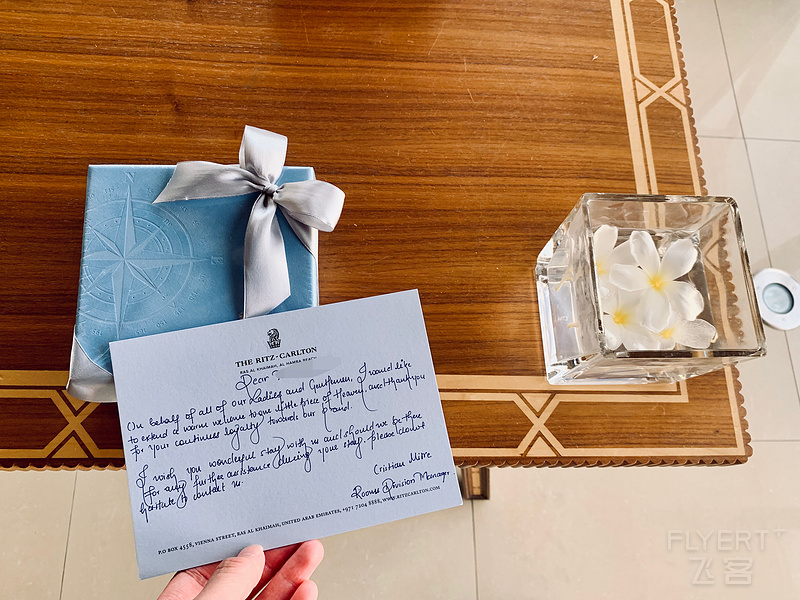 THE RITZ-CARLTON
RAS AL KHAIMAH, AL HAMRA BEACH
Dear
On behalf of all of our Ladies and Gentlemen, I would like
to extend a warm welcome to our little piece of Heaven and thank you
for your continues loyalty towards our brand.
I wish you wonderful stay with us and should we be there
for any further assistance during your stay, please do not
hesitate to contact us.
Cristian Mitre
Rooms Division Manager
P.O BOX 4558, VIENNA STREET, RAS AL KHAIMAH, UNITED ARAB EMIRATES, +971 7204 8888, WWW.RITZCARLTON.COM
FLYERT+
飞客